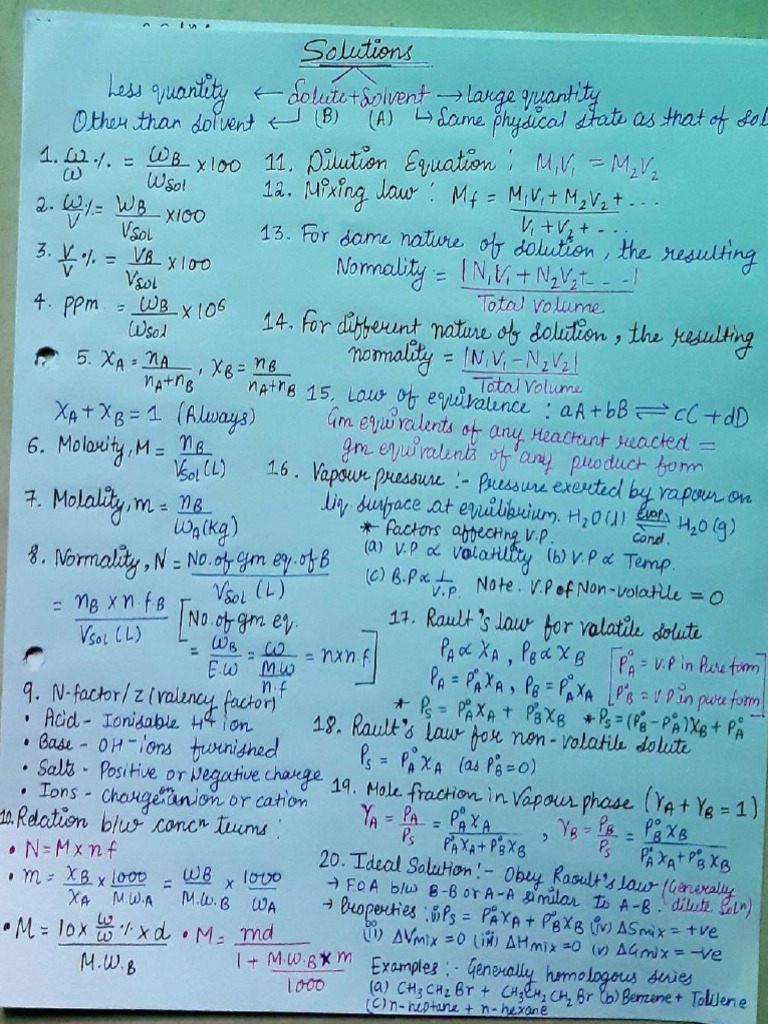 Solutions
Less quantity ← Solute + Solvent → Large quantity
Other than solvent ↲ (B) (A) ↳ Same physical state as that of sol
1. ω/ω % = ωB/ωSol × 100
2. ω/V % = WB/VSol × 100
3. V/V % = VB/VSol × 100
4. ppm = ωB/ωSol × 10⁶
5. XA = nA/(nA+nB), XB = nB/(nA+nB)
XA + XB = 1 (Always)
6. Molarity, M = nB/VSol (L)
7. Molality, m = nB/ωA (kg)
8. Normality, N = No. of gm eq. of B/VSol (L)
= nB × n.fB/VSol (L) [No. of gm eq.
= ωB/E.W = ω/(M.W/n.f) = n×n.f]
9. N-factor/Z (valency factor)
• Acid - Ionisable H⁺ ion
• Base - OH⁻ ions furnished
• Salts - Positive or Negative charge
• Ions - Charge on anion or cation
10. Relation b/w concⁿ terms :
• N = M × nf
• m = XB/XA × 1000/M.W.A = ωB/M.W.B × 1000/ωA
• M = 10 × ω/ω % × d/M.W.B • M = md/(1 + M.W.B × m/1000)
11. Dilution Equation : M₁V₁ = M₂V₂
12. Mixing law : Mf = (M₁V₁ + M₂V₂ + ...)/(V₁ + V₂ + ...)
13. For same nature of solution, the resulting
Normality = |N₁V₁ + N₂V₂ + ...|/Total volume
14. For different nature of solution, the resulting
normality = |N₁V₁ - N₂V₂|/Total Volume
15. Law of equivalence : aA + bB ⇌ cC + dD
Gm equivalents of any reactant reacted =
gm equivalents of any product form
16. Vapour pressure :- Pressure exerted by vapour on
liq surface at equilibrium. H₂O(l) ⇌ (Evop. / Cond.) H₂O(g)
* Factors affecting V.P.
(a) V.P ∝ Volatility (b) V.P ∝ Temp.
(c) B.P ∝ 1/V.P. Note. V.P of Non-volatile = 0
17. Rault's law for volatile solute
PA ∝ XA, PB ∝ XB [P°A = V.P in Pure form
PA = P°A XA, PB = P°A XA P°B = V.P in pure form]
* PS = P°A XA + P°B XB * PS = (P°B - P°A)XB + P°A
18. Rault's law for non-volatile solute
PS = P°A XA (as P°B = 0)
19. Mole fraction in Vapour phase (YA + YB = 1)
YA = PA/PS = P°A XA/(P°A XA + P°B XB), YB = PB/PS = P°B XB/(P°A XA + P°B XB)
20. Ideal Solution :- Obey Raoult's law (Generally
→ FOA b/w B-B or A-A similar to A-B. dilute Solⁿ)
→ Properties : (i) PS = P°A XA + P°B XB (iv) ΔSmix = +ve
(ii) ΔVmix = 0 (iii) ΔHmix = 0 (v) ΔGmix = -ve
Examples :- Generally homologous series
(a) CH₃CH₂Br + CH₃CH₂CH₂Br (b) Benzene + Tolulene
(c) n-heptane + n-hexane